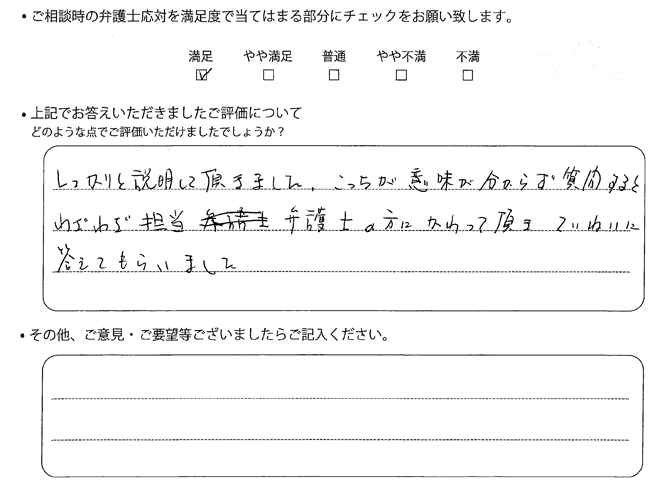 ・ご相談時の弁護士応対を満足度で当てはまる部分にチェックをお願い致します。
満足 やや満足 普通 やや不満 不満
☑ □ □ □ □
・上記でお答えいただきましたご評価について
どのような点でご評価いただけましたでしょうか？
しっかりと説明して頂きました。こっちが意味が分からず質問すると
わざわざ担当 弁護士の方にかわって頂き ていねいに
答えてもらいました
・その他、ご意見・ご要望等ございましたらご記入ください。